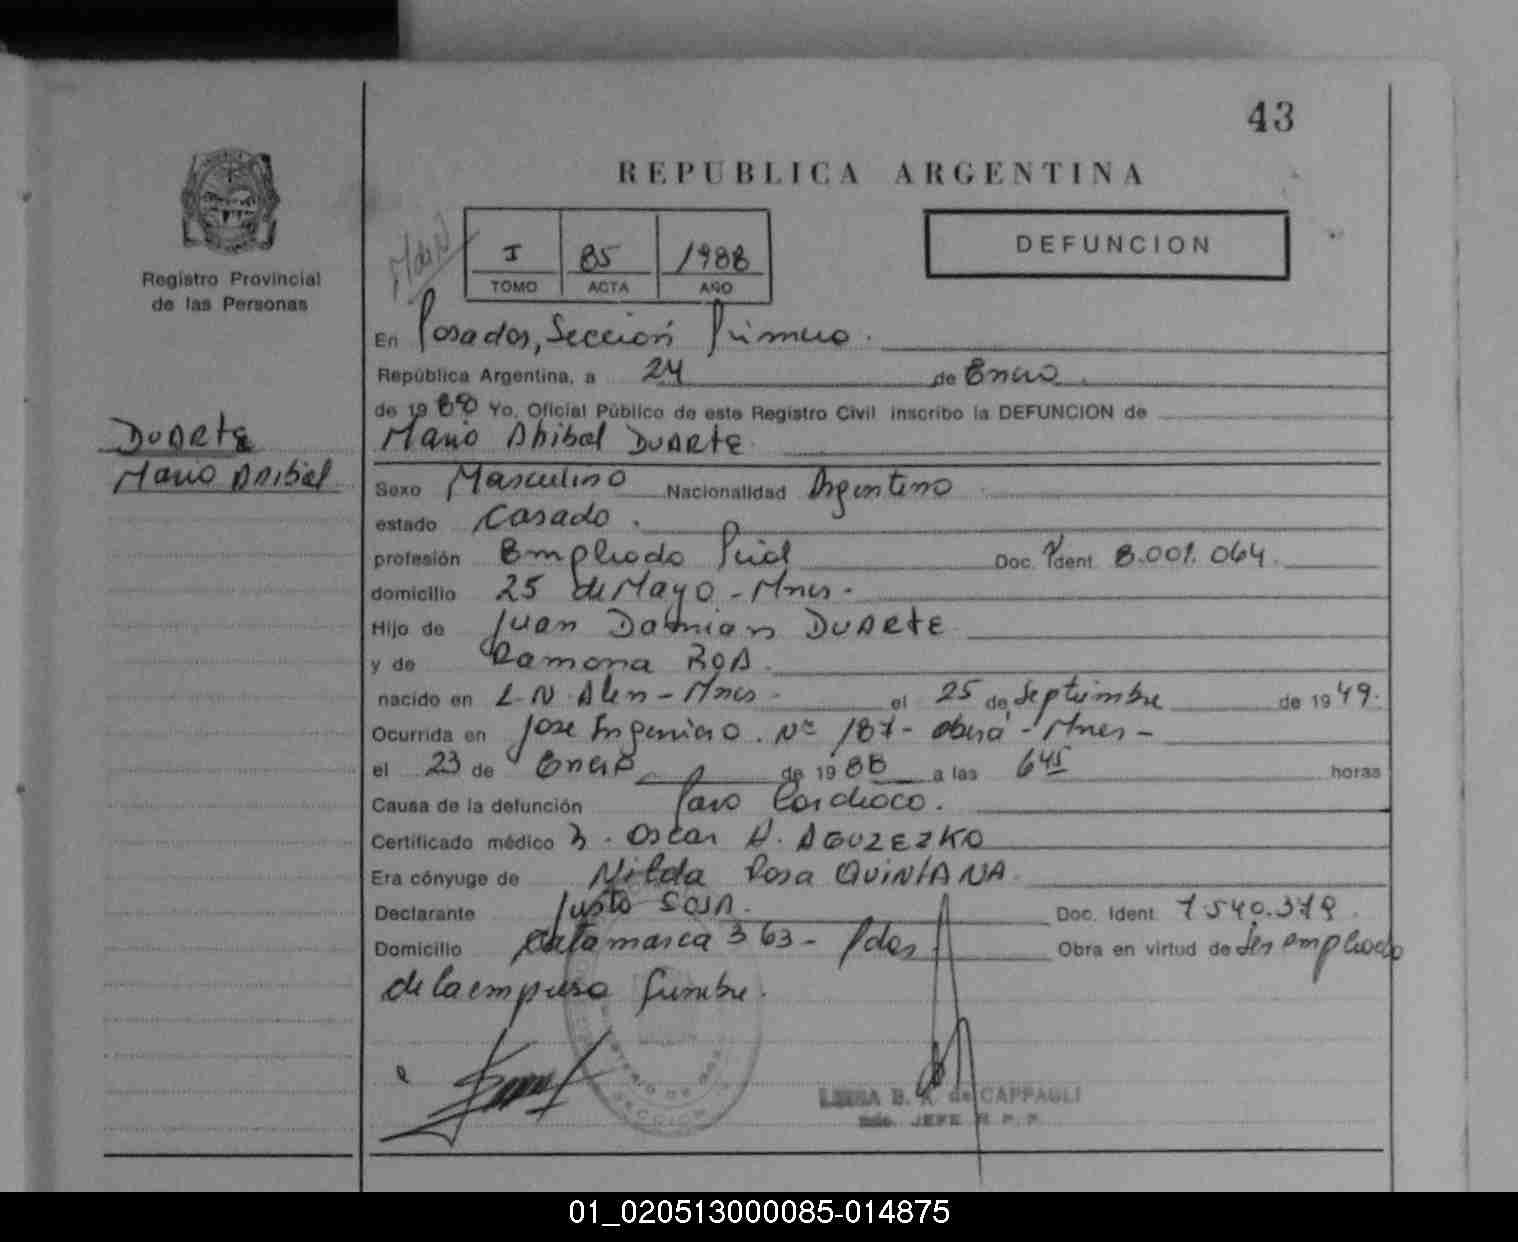 43
REPUBLICA ARGENTINA
I 85 1988
TOMO ACTA AÑO
DEFUNCION
Registro Provincial
de las Personas
En Posadas, Sección Primera.
República Argentina, a 24 de Enero
de 1988 Yo, Oficial Público de este Registro Civil inscribo la DEFUNCION de
DUARTE
Mario Anibal DUARTE
Mario Anibal
Sexo Masculino Nacionalidad Argentino
estado Casado.
profesión Empleado Doc. Ident. 8.001.064.
domicilio 25 de Mayo - Mnes.
Hijo de Juan Damian DUARTE
y de Ramona ROA.
nacido en L.N. Alem - Mnes - el 25 de Septiembre de 1949.
Ocurrida en Jose Ingeniero. Nº 187 - oberá - Mnes -
el 23 de Enero de 1988 a las 6 45 horas
Causa de la defunción Paro Cardiaco.
Certificado médico Oscar A. AGUZEZKO
Era cónyuge de Nilda Rosa QUINTANA
Declarante Justo SOSA. Doc. Ident. 7.540.379.
Domicilio Catamarca 363 - Pdas Obra en virtud de ser empleado
de la empresa funebre.
B. K. de CAPPAGLI
JEFE R. P. P.
01_020513000085-014875